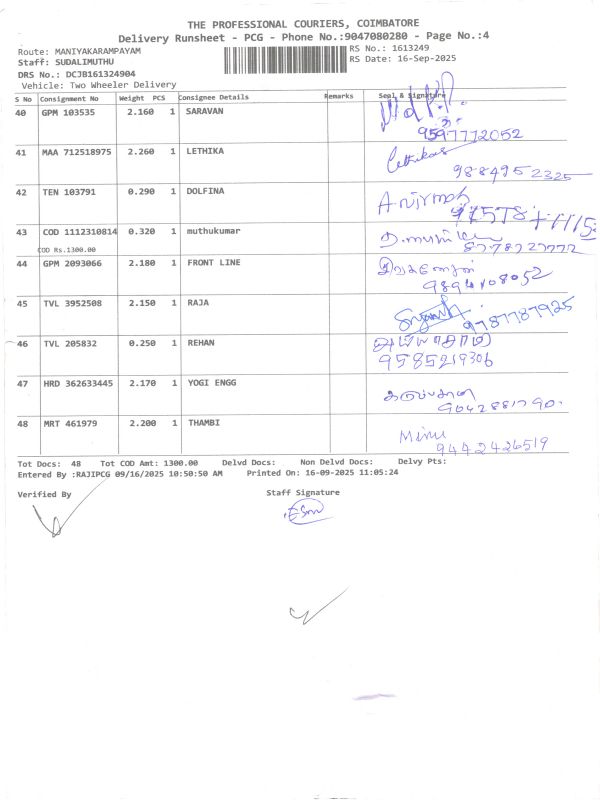 THE PROFESSIONAL COURIERS, COIMBATORE
Delivery Runsheet - PCG - Phone No.:9047080280 - Page No.:4
Route: MANIYAKARAMPAYAM RS No.: 1613249
Staff: SUDALIMUTHU RS Date: 16-Sep-2025
DRS No.: DCJB161324904
Vehicle: Two Wheeler Delivery
S No Consignment No Weight PCS Consignee Details Remarks Seal & Signature
40 GPM 103535 2.160 1 SARAVAN
9597772052
41 MAA 712518975 2.260 1 LETHIKA Lethikas
9884952325
42 TEN 103791 0.290 1 DOLFINA
43 COD 1112310814 0.320 1 muthukumar
COD Rs.1300.00 8778727772
44 GPM 2093066 2.180 1 FRONT LINE
9894108052
45 TVL 3952508 2.150 1 RAJA
9787787925
46 TVL 205832 0.250 1 REHAN
9585219306
47 HRD 362633445 2.170 1 YOGI ENGG
9042881790
48 MRT 461979 2.200 1 THAMBI Minu
9442426519
Tot Docs: 48 Tot COD Amt: 1300.00 Delvd Docs: Non Delvd Docs: Delvy Pts:
Entered By :RAJIPCG 09/16/2025 10:50:50 AM Printed On: 16-09-2025 11:05:24
Verified By Staff Signature